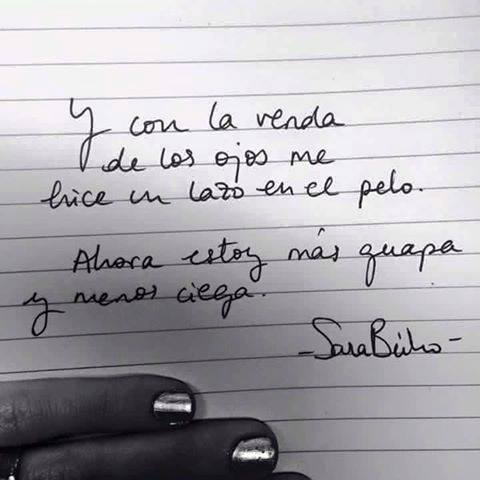 Y con la venda
de los ojos me
hice un lazo en el pelo.
Ahora estoy más guapa
y menos ciega.
-Sara Búho-